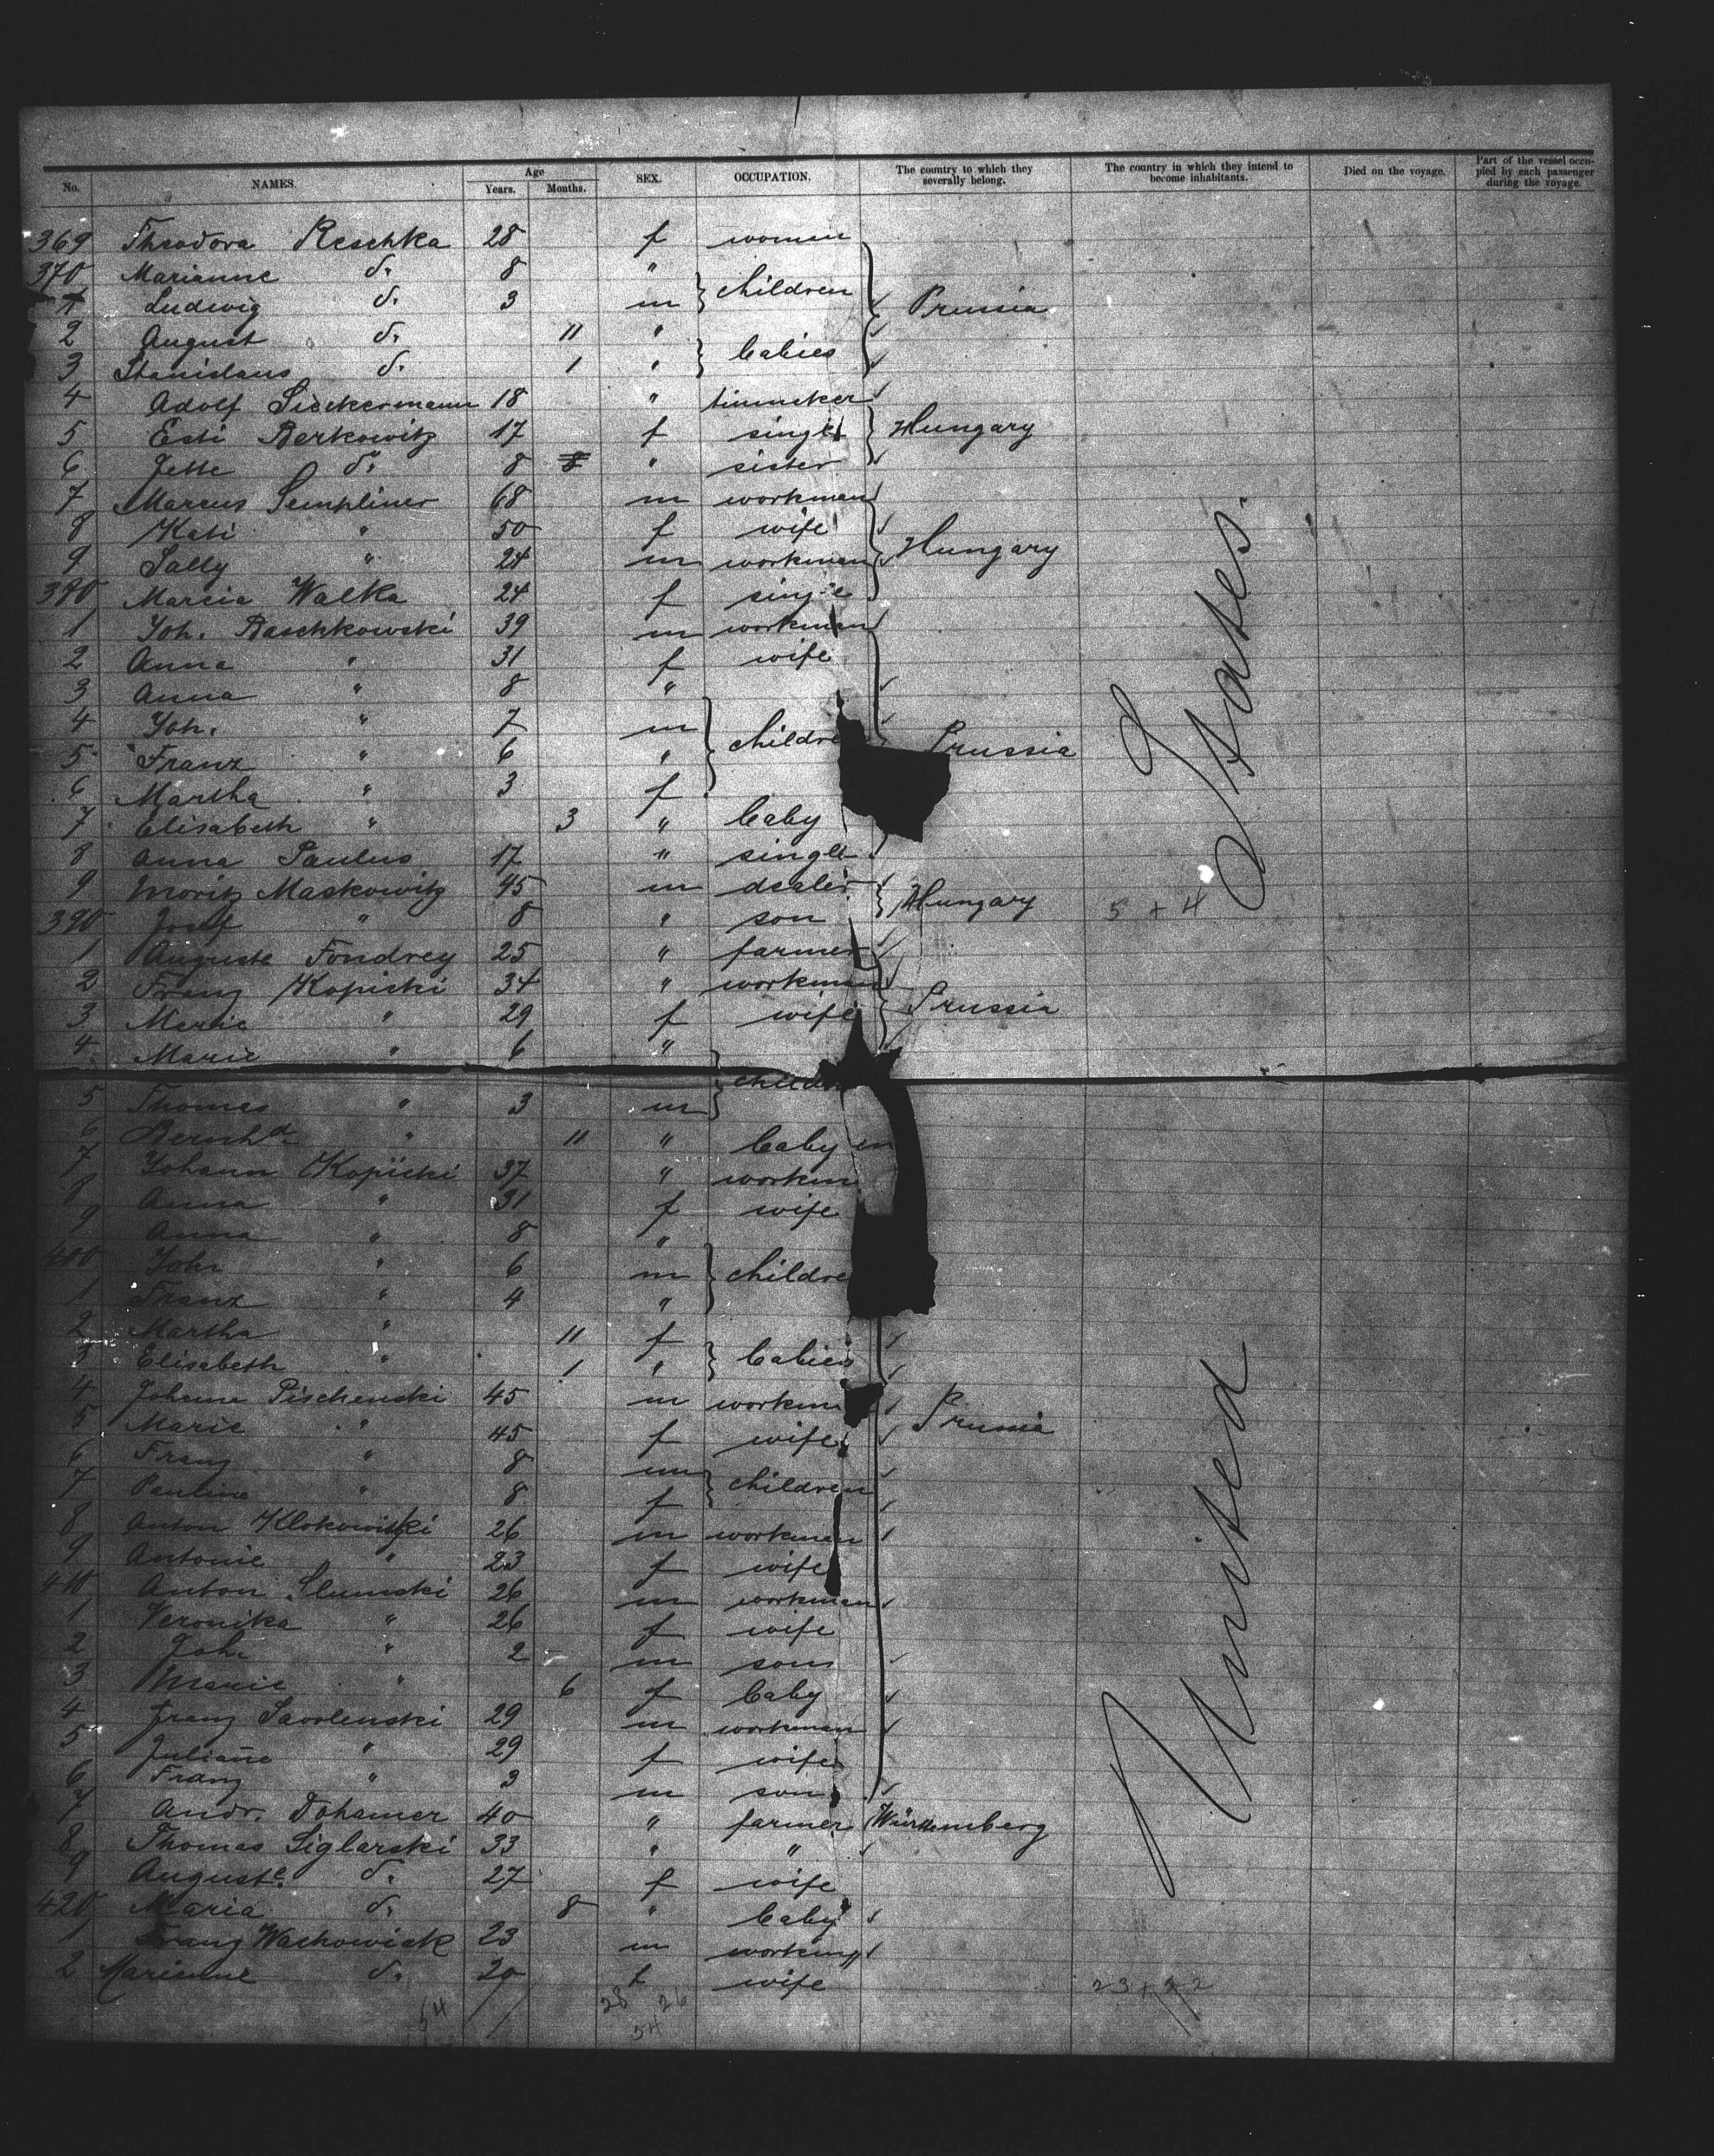 No. NAMES. Age Years. Months. SEX. OCCUPATION. The country to which they severally belong. The country in which they intend to become inhabitants. Died on the voyage. Part of the vessel occupied by each passenger during the voyage.
369 Theodora Reschka 28 f women
370 Marianne d. 8 " children
1 Ludwig d. 3 m Prussia
2 August d. 11 " babies
3 Stanislaus d. 1 "
4 Adolf 18 "
5 Esti Berkowitz 17 f single Hungary
6 Jette d. 8 8 " sister
7 Marcus Sempliner 68 m workman
8 Kati " 50 f wife Hungary
9 Sally " 24 m workman
380 Marcia Walka 24 f single
1 Joh. Raschkowski 39 m workman
2 Anna " 31 f wife
3 Anna " 8 "
4 Joh. " 7 m children
5 Franz " 6 " Prussia
6 Martha " 3 f
7 Elisabeth " 3 " baby
8 Anna Paulus 17 " single
9 Moritz Maskowitz 45 m dealer Hungary 5 + 4
390 Josef " 8 " son
1 Auguste Fondrey 25 " farmer
2 Franz Kopicki 34 " workman
3 Marie " 29 f wife Prussia
4 Marie " 6 "
5 Thomas " 3 m children
6 Bernhd " 11 " baby
7 Johann Kopicki 37 " workm
8 Anna " 31 f wife
9 Anna " 8 "
400 Joh. " 6 m childre
1 Franz " 4 "
2 Martha " 11 f babies
3 Elisabeth " 1 "
4 Johann Pischenski 45 m workm
5 Marie " 45 f wife Prussia
6 Franz " 8 m children
7 Pauline " 8 f
8 Anton 26 m workman
9 Antonie " 23 f wife
410 Anton Slumski 26 m workman
1 Veronika " 26 f wife
2 Joh. " 2 m son
3 Marie " 6 f baby
4 Franz 29 m workman
5 Juliane " 29 f wife
6 Franz " 3 m son
7 Andr. Dohamer 40 " farmer Württemberg
8 Thomas Siglarski 33 " "
9 Auguste d. 27 f wife
420 Maria d. 8 " baby
1 Franz Wachowiak 23 m workm
2 Marianne d. 20 f wife
54 28 26 23 + 22
54
United States.